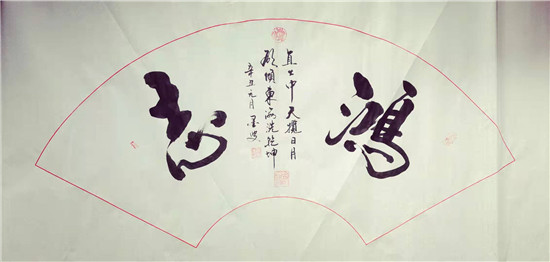 鴻志
直上中天攬日月
欲傾東海洗乾坤
辛丑元月